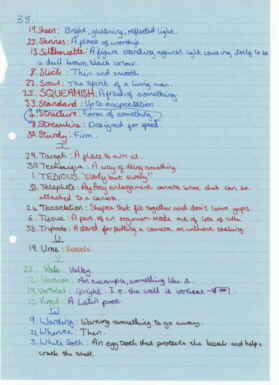 38.
17. Sheen: Bright, glistening, reflected light.
20. Shrines: A place of worship.
13. Silhouette: A figure standing against light causing body to be
a dull brown black colour.
8. Slick: Thin and smooth.
21. Soul: The spirit of a living man.
25. SQUEAMISH: Afraid of something.
23. Standard: Up to expectation
Structure: Form of something
Streamline: Designed for speed
30. Sturdy: Firm.
T
29. Target: A place to aim at.
30. Technique: A way of doing something
1. TEDIOUS: "slowly but surely"
Telephoto: enlargement camera lense that can be
attached to a camera.
26. Tessellation: Shapes that fit together and don't leave gaps.
6. Tissue: A part of an organism made out of lots of cells.
33. Tripods: A stand for putting a camera on without shaking
U
19. Urns: Vessels
V
22. Vale: Valley
Version: An example, something like it.
Vertical: Upright. I.e. the wall is vertical
Virgil: A Latin poet.
W
9. Warding: Warning something to go away.
Whence: Then.
3. White Tooth: An egg tooth that protects the beak and helps
crack the shell.